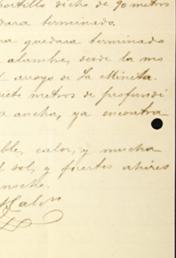 portillo dicho de 90 metros
dara terminado.
na quedara terminado
alambre, desde la mo
l arroyo de La Mineta.
iete metros de profundi
a ancha, ya encontra
ble, calor, y mucha
l sol, y fuertes ahires
noche.